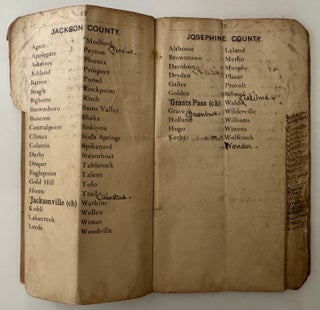 12
JACKSON COUNTY.
Agate
Applegate
Asbestos
Ashland
Barron
Beagle
Bigbutte
Brownsboro
Buncom
Centralpoint
Climax
Colestin
Derby
Draper
Eaglepoint
Gold Hill
Hunts
Jacksonville (ch)
Kubli
Lakecreek
Leeds
Medford
Peyton
Phoenix
Prospect
Pursel
Rockpoint
Ruch
Sams Valley
Shake
Siskiyou
Soda Springs
Spikenard
Steamboat
Tablerock
Talent
Tolo
Trail
Watkins
Wellen
Wimer
Woodville
JOSEPHINE COUNTY.
Althouse
Browntown
Davidson
Dryden
Galice
Golden
Grants Pass (ch)
Grave
Holland
Hugo
Kerby
Leland
Merlin
Murphy
Placer
Provolt
Selma
Waldo
Wilderville
Williams
Winona
Wolfcreek
Wonder